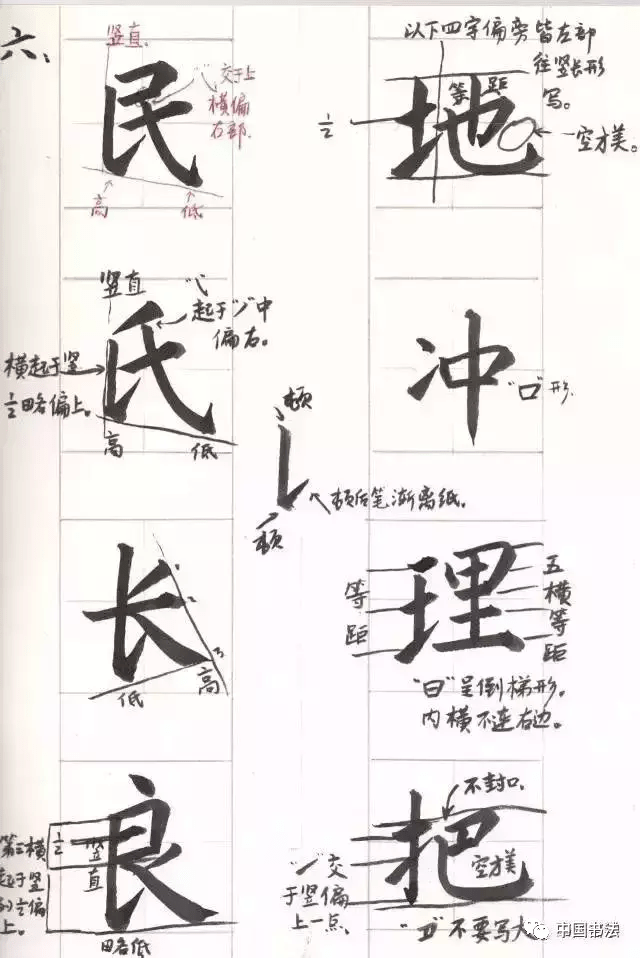 六、
竖直.
民
"㇏"交于上
横偏
右部.
高
低
以下四字偏旁皆左部
往竖长形
写。
等距
地
1/2
空才美。
竖直
"㇏"
起于"丿"中
偏右。
横起于竖
1/2略偏上。
氏
高
低
冲
"口"形.
顿
顿后笔渐离纸.
顿
长
1
2
3
低
高
等
距
理
五
横
等
距
"曰"呈倒梯形.
内横不连右边。
良
第三横
起于竖
的1/2偏
上。
1/2
竖
直
略低
不封口.
把
空才美
"㇀"交
于竖偏
上一点.
不要写大
中国书法